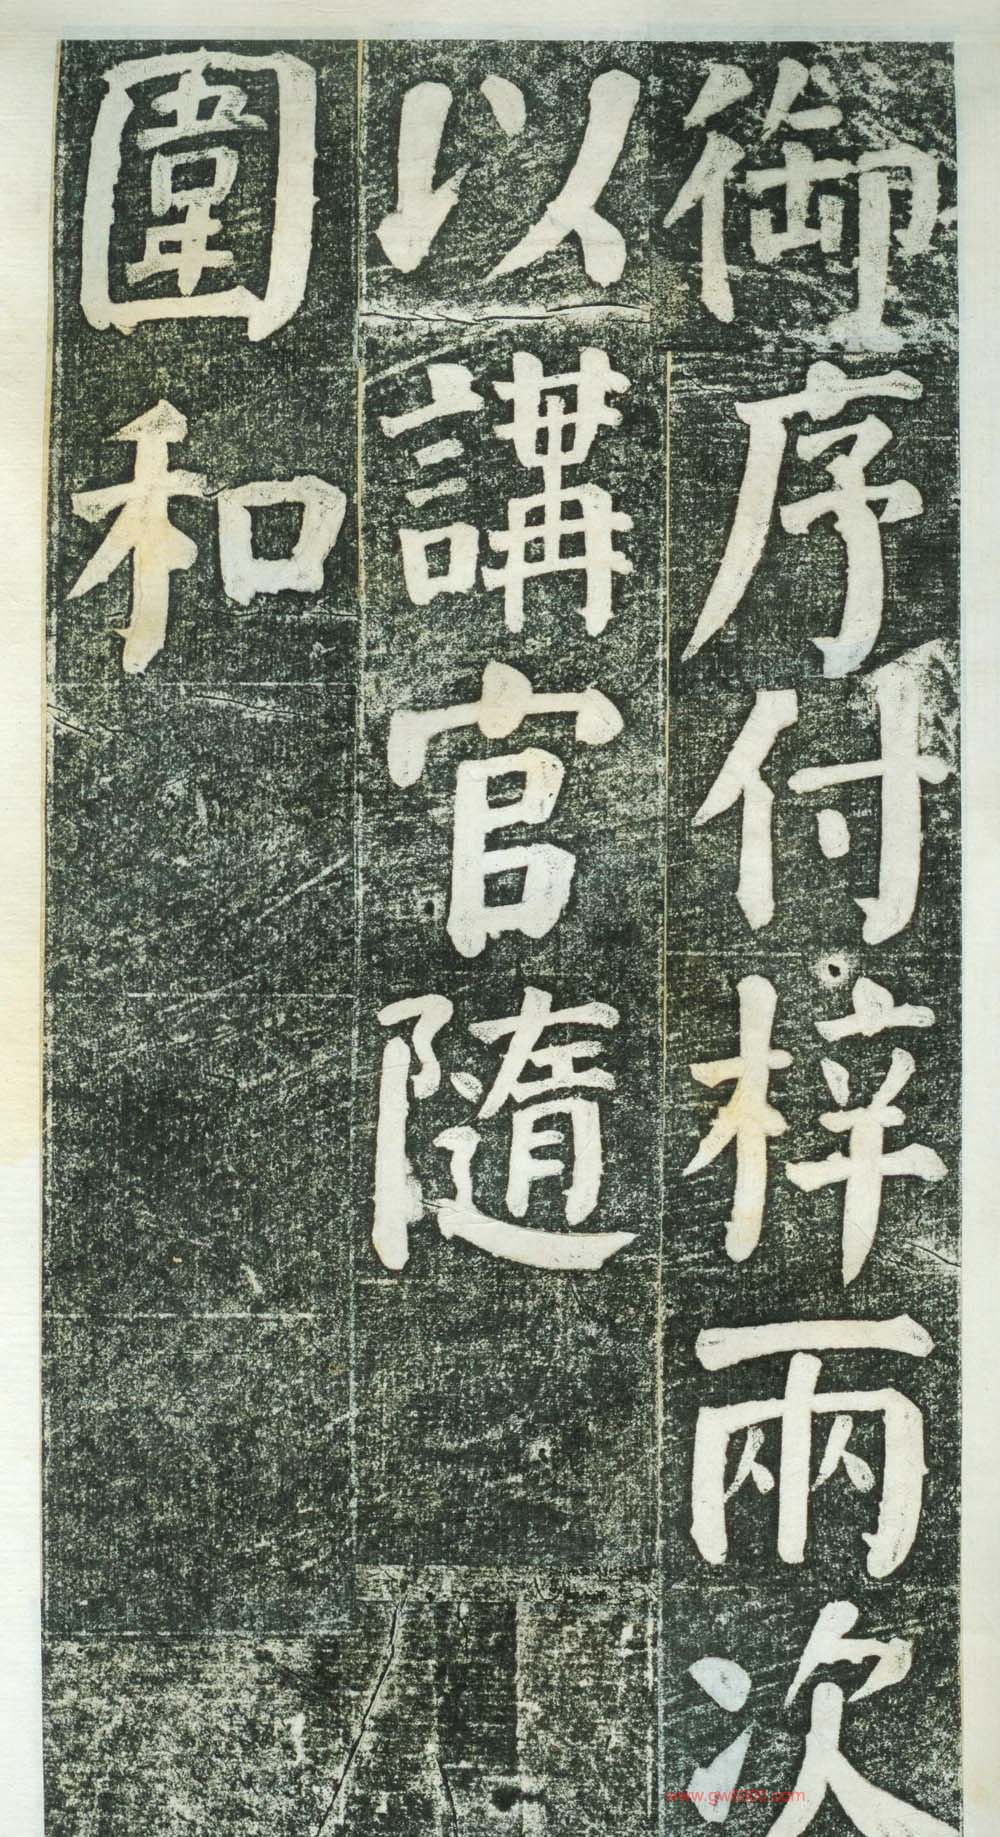 御序付梓兩次
以講官隨
圍和
www.gwfd60.com